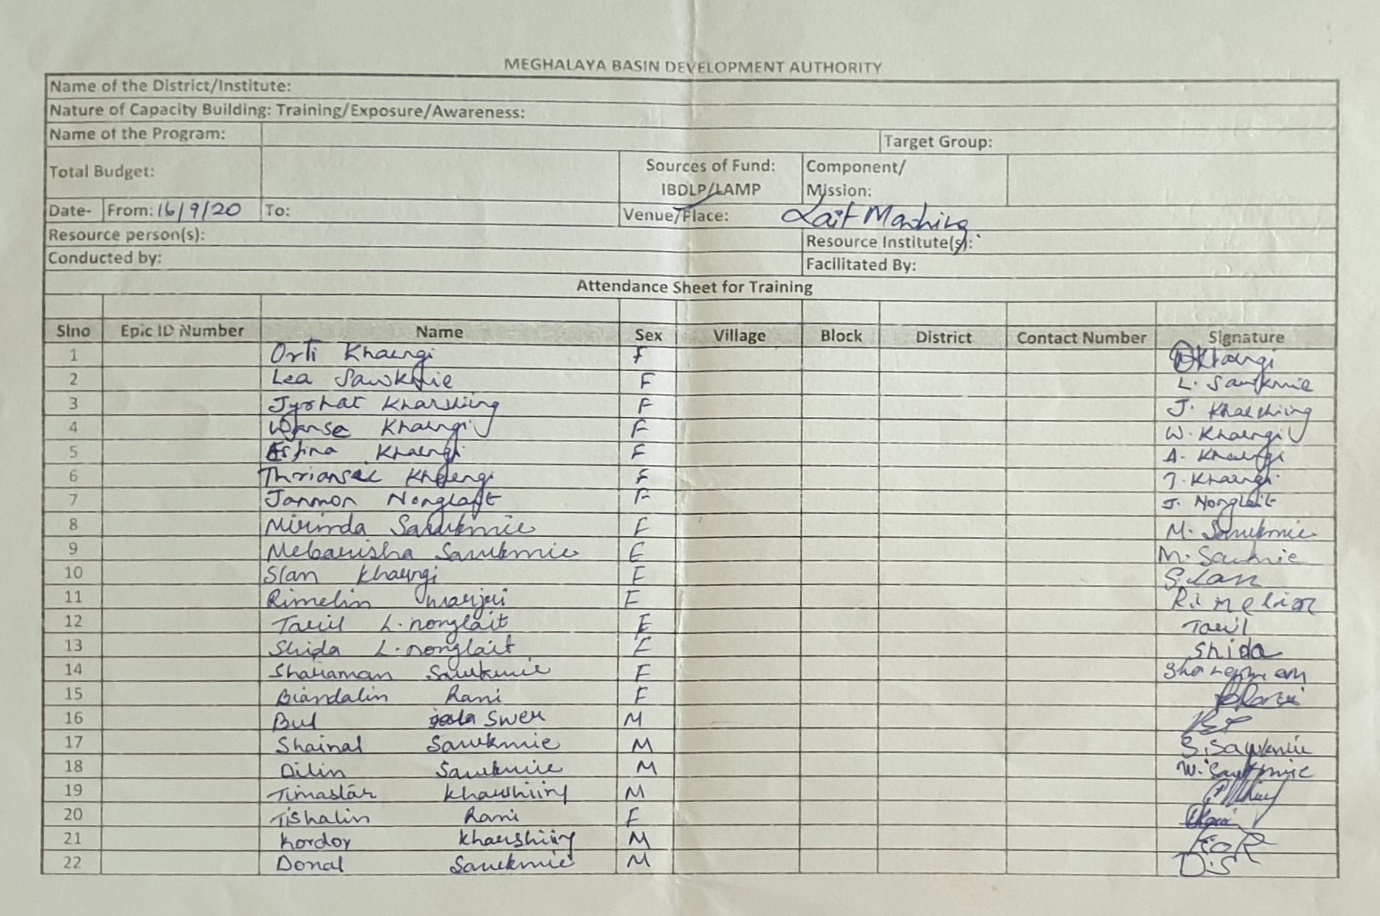 MEGHALAYA BASIN DEVELOPMENT AUTHORITY
Name of the District/Institute:
Nature of Capacity Building: Training/Exposure/Awareness:
Name of the Program: Target Group:
Total Budget: Sources of Fund: IBDLP/LAMP Component/ Mission:
Date- From: 16/9/20 To: Venue/Place: Lait
Resource person(s): Resource Institute(s):
Conducted by: Facilitated By:
Attendance Sheet for Training
Slno Epic ID Number Name Sex Village Block District Contact Number Signature
1 Orti Khaengi F
2 Lea Sawkmie F L. Sawkmie
3 Jyrhat Kharshiing F J. Kharshiing
4 Khaengi F W. Khaengi
5 Khaengi F A. Khaengi
6 Khaengi F J. Khaengi
7 Janmon Nonglait F J. Nonglait
8 Mirinda Sawkmie F M. Sawkmie
9 Mebarisha Sawkmie F M. Sawkmie
10 Slan Khaengi F Slan
11 Rimelin Marjei F Rimelin
12 Taril L. nonglait F Taril
13 Shida L. nonglait F Shida
14 Sharaman Sawkmie F
15 Biandalin Rani F
16 Bul Swer M
17 Shainal Sawkmie M S. Sawkmie
18 Dilin Sawkmie M W. Sawkmie
19 Timastar kharshiing M
20 Tishalin Rani F
21 Kordor kharshiing M
22 Donal Sawkmie M D.S